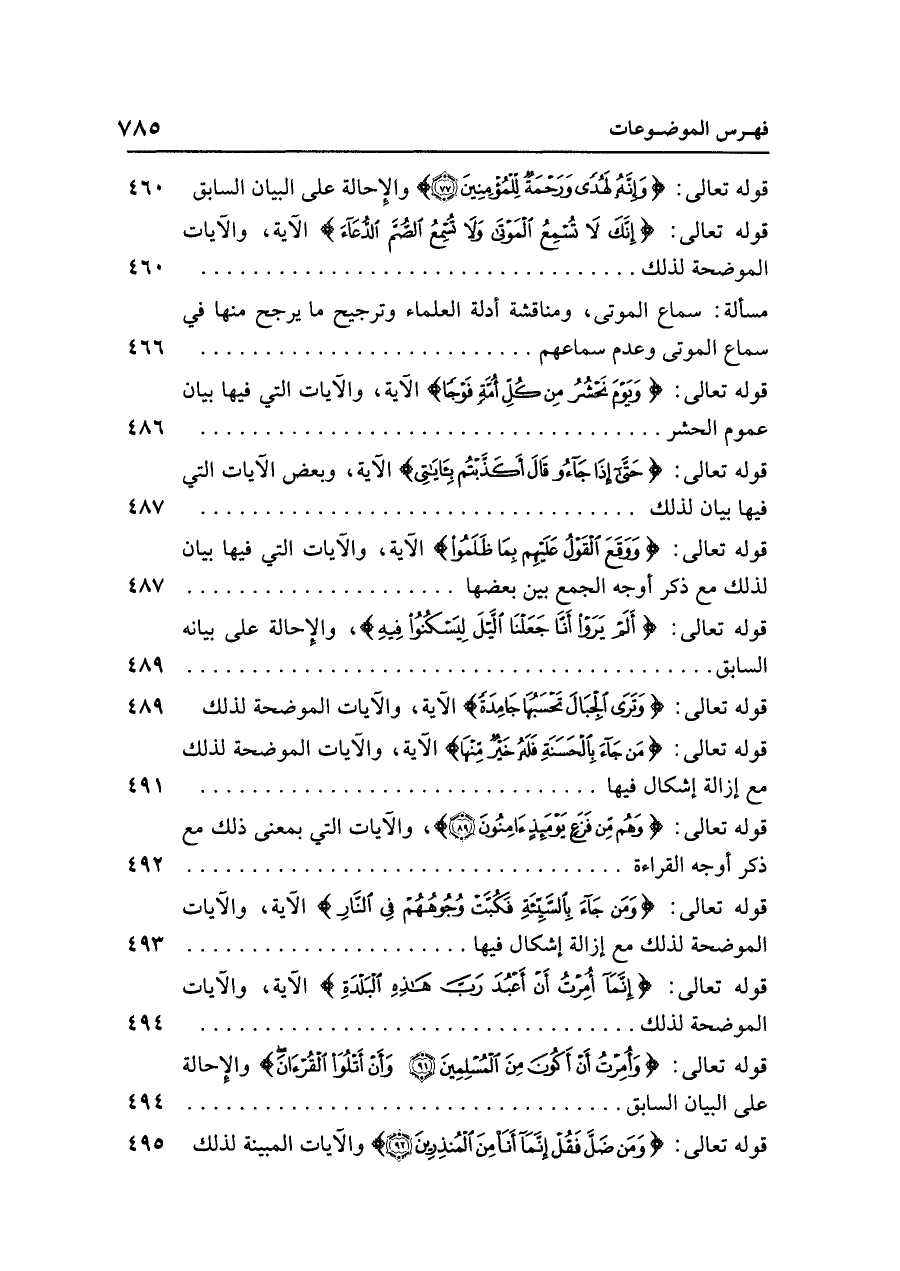 فهـرس الموضـوعات ٧٨٥
قوله تعالى: ﴿وَإِنَّهُۥ لَهُدٗى وَرَحۡمَةٞ لِّلۡمُؤۡمِنِينَ ٧٧﴾ والإحالة على البيان السابق ٤٦٠
قوله تعالى: ﴿إِنَّكَ لَا تُسۡمِعُ ٱلۡمَوۡتَىٰ وَلَا تُسۡمِعُ ٱلصُّمَّ ٱلدُّعَآءَ﴾ الآية، والآيات
الموضحة لذلك .................................. ٤٦٠
مسألة: سماع الموتى، ومناقشة أدلة العلماء وترجيح ما يرجح منها في
سماع الموتى وعدم سماعهم .......................... ٤٦٦
قوله تعالى: ﴿وَيَوۡمَ نَحۡشُرُ مِن كُلِّ أُمَّةٖ فَوۡجٗا﴾ الآية، والآيات التي فيها بيان
عموم الحشر .................................... ٤٨٦
قوله تعالى: ﴿حَتَّىٰٓ إِذَا جَآءُو قَالَ أَكَذَّبۡتُم بِـَٔايَٰتِي﴾ الآية، وبعض الآيات التي
فيها بيان لذلك .................................. ٤٨٧
قوله تعالى: ﴿وَوَقَعَ ٱلۡقَوۡلُ عَلَيۡهِم بِمَا ظَلَمُواْ﴾ الآية، والآيات التي فيها بيان
لذلك مع ذكر أوجه الجمع بين بعضها ..................... ٤٨٧
قوله تعالى: ﴿أَلَمۡ يَرَوۡاْ أَنَّا جَعَلۡنَا ٱلَّيۡلَ لِيَسۡكُنُواْ فِيهِ﴾، والإحالة على بيانه
السابق......................................... ٤٨٩
قوله تعالى: ﴿وَتَرَى ٱلۡجِبَالَ تَحۡسَبُهَا جَامِدَةٗ﴾ الآية، والآيات الموضحة لذلك ٤٨٩
قوله تعالى: ﴿مَن جَآءَ بِٱلۡحَسَنَةِ فَلَهُۥ خَيۡرٞ مِّنۡهَا﴾ الآية، والآيات الموضحة لذلك
مع إزالة إشكال فيها ............................... ٤٩١
قوله تعالى: ﴿وَهُم مِّن فَزَعٖ يَوۡمَئِذٍ ءَامِنُونَ ٨٩﴾، والآيات التي بمعنى ذلك مع
ذكر أوجه القراءة .................................. ٤٩٢
قوله تعالى: ﴿وَمَن جَآءَ بِٱلسَّيِّئَةِ فَكُبَّتۡ وُجُوهُهُمۡ فِي ٱلنَّارِ﴾ الآية، والآيات
الموضحة لذلك مع إزالة إشكال فيها ...................... ٤٩٣
قوله تعالى: ﴿إِنَّمَآ أُمِرۡتُ أَنۡ أَعۡبُدَ رَبَّ هَٰذِهِ ٱلۡبَلۡدَةِ﴾ الآية، والآيات
الموضحة لذلك .................................. ٤٩٤
قوله تعالى: ﴿وَأُمِرۡتُ أَنۡ أَكُونَ مِنَ ٱلۡمُسۡلِمِينَ ٩١ وَأَنۡ أَتۡلُوَاْ ٱلۡقُرۡءَانَۖ﴾ والإحالة
على البيان السابق.................................. ٤٩٤
قوله تعالى: ﴿وَمَن ضَلَّ فَقُلۡ إِنَّمَآ أَنَا۠ مِنَ ٱلۡمُنذِرِينَ ٩٢﴾ والآيات المبينة لذلك ٤٩٥